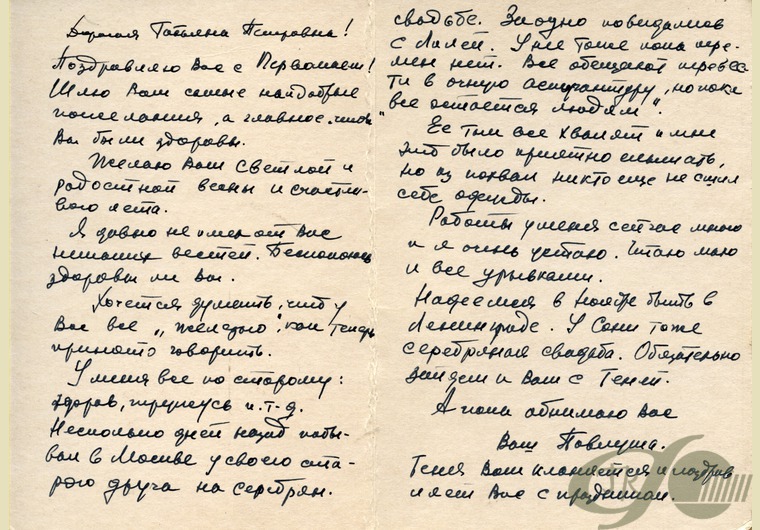 Дорогая Татьяна Петровна!
Поздравляю Вас с Первомаем!
Шлю Вам самые найдобрые
пожелания, а главное, чтоб
Вы были здоровы.
Желаю Вам светлой и
радостной весны и счастли-
вого лета.
Я давно не имел от Вас
никаких вестей. Беспокоюсь
здоровы ли Вы.
Хочется думать, что у
Вас все „железно", как теперь
принято говорить.
У меня все по старому:
здоров, тружусь и.т-д.
Несколько дней назад побы-
вал в Москве у своего ста-
рого друга на серебрян.
свадьбе. Заодно повидались
с Лилей. У нее тоже пока пере-
мен нет. Все обещают перевес-
ти в очную аспирантуру, но пока
"все остается людям".
Ее там все хвалят и мне
это было приятно слышать,
но из похвал никто еще не сшил
себе одежды.
Работы у меня сейчас много
и я очень устаю. Читаю мало
и все урывками.
Надеемся в ноябре быть в
Ленинграде. У Сани тоже
серебряная свадьба. Обязательно
зайдем к Вам с Геней.
А пока обнимаю Вас
Ваш Павлуша.
Геня Вам кланяется и поздрав
ляет Вас с праздником.